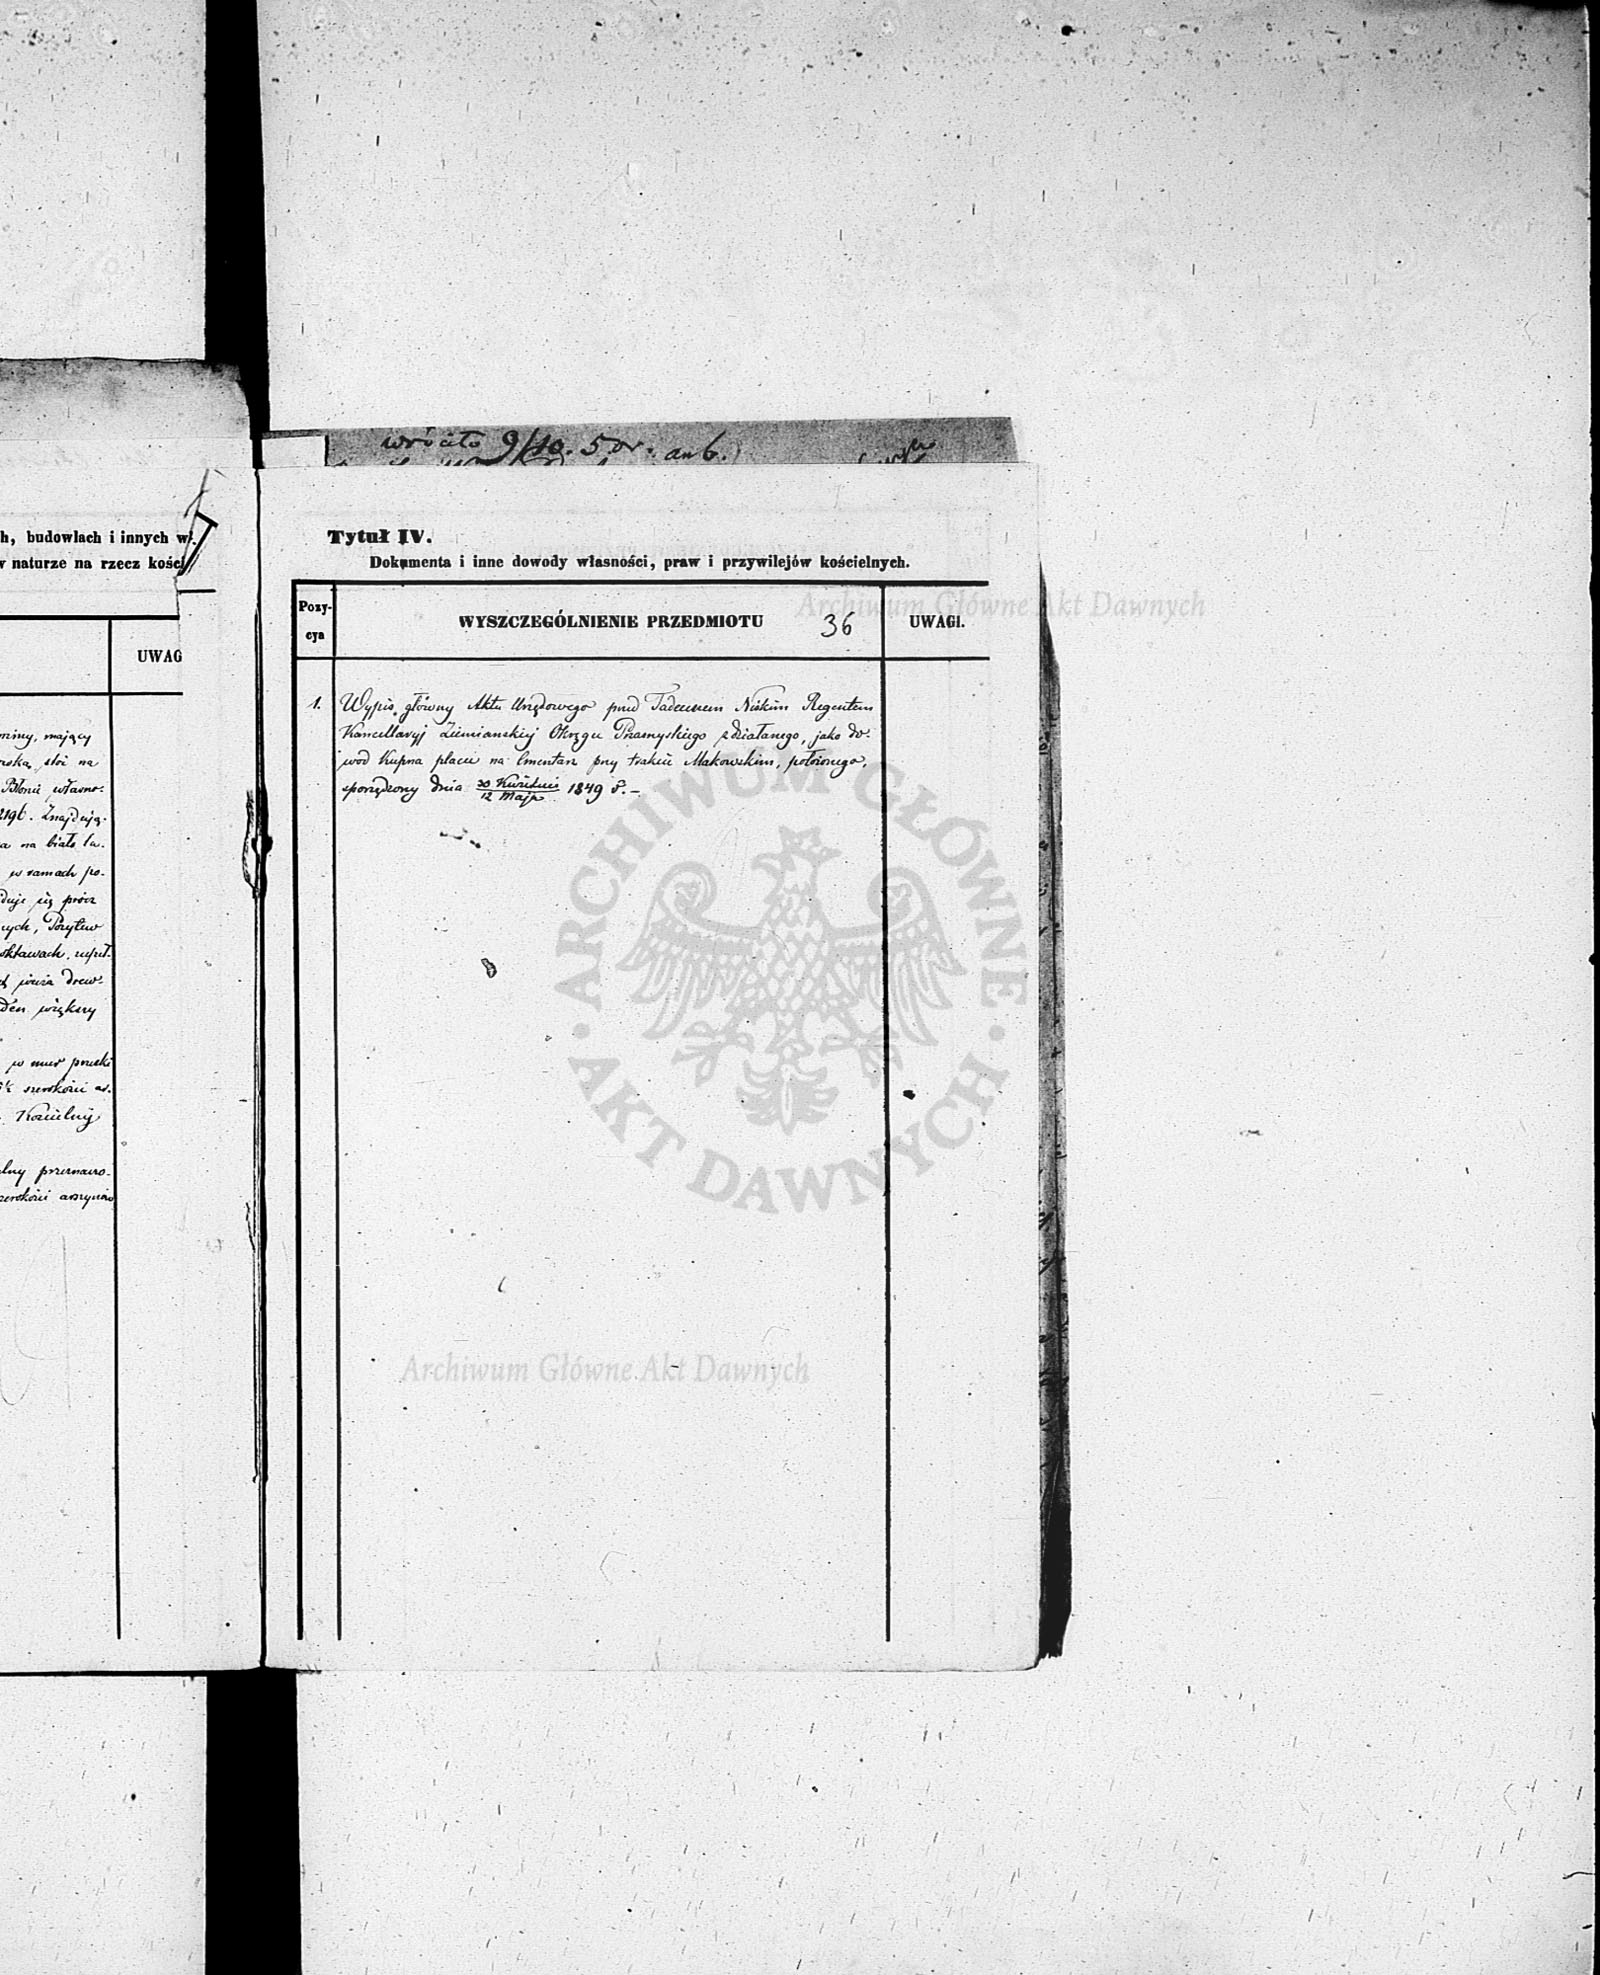 wróciło 9/10. 50r. an 6.
h, budowlach i innych w
w naturze na rzecz kości
UWAG
miny, mający
stoi na
Błonie własno-
2196. Znajdują-
a na biało la-
w ramach po-
duje się prócz
nych,
oktawach,
wieża drew-
den większy
w mur pruski
szerokości ar-
Kościelny
lny przemuro-
szerokości arszynów
Tytuł IV.
Dokumenta i inne dowody własności, praw i przywilejów kościelnych.
Pozy-
cya
WYSZCZEGÓLNIENIE PRZEDMIOTU 36
UWAGI.
1. Wypis główny Aktu Urzędowego przed Tadeuszem Niskim Regentem
Kancellaryj Ziemianskiej Okręgu Przasnyskiego zdziałanego, jako do-
wod Kupna placu na Cmentarz przy trakcie Makowskim, położonego,
sporządzony dnia 30 Kwietnia / 12 Maja 1849 r. –
Archiwum Główne Akt Dawnych
· ARCHIWUM GŁÓWNE ·
AKT DAWNYCH
Archiwum Główne Akt Dawnych